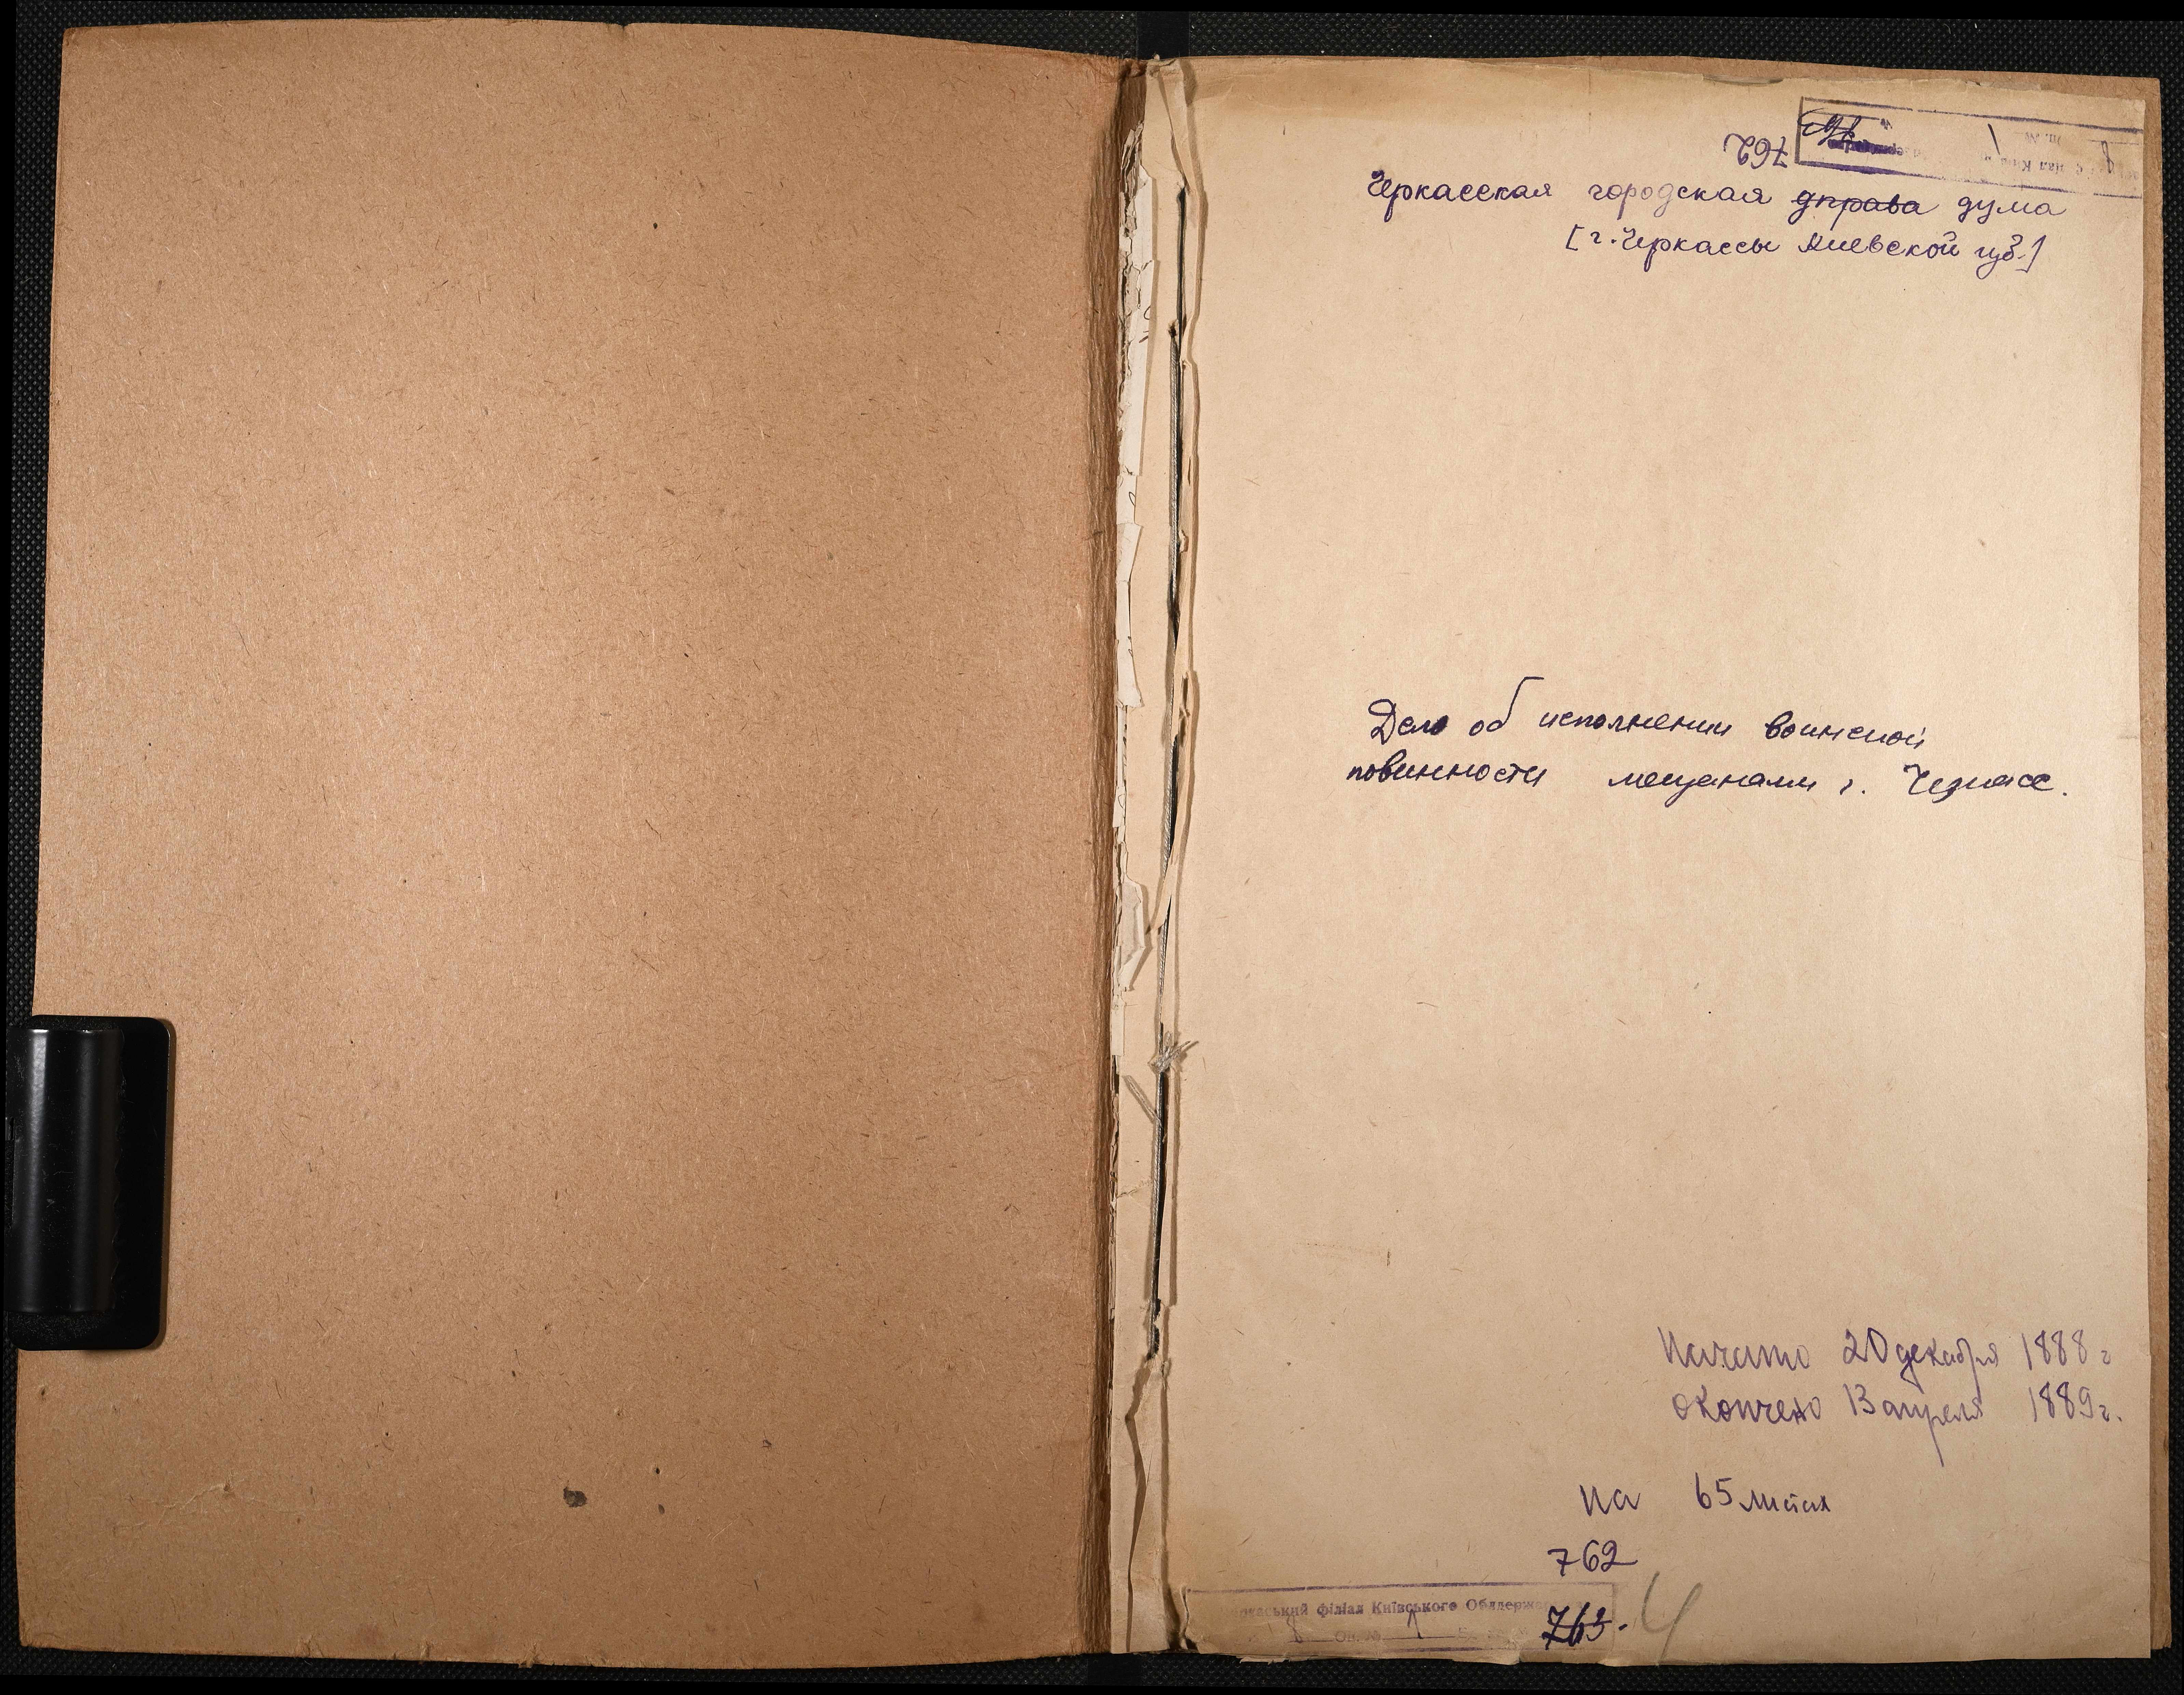 762
Черкасская городская управа дума
[г. Черкассы Киевской губ.]
Дело об исполнении воинской
повинности мещанами г. Черкасс.
Начато 20 декабря 1888 г
окончено 13 апреля 1889 г.
на 65 листах
762
філіал Київського Облдерж
8 Оп. № 1
763.
4